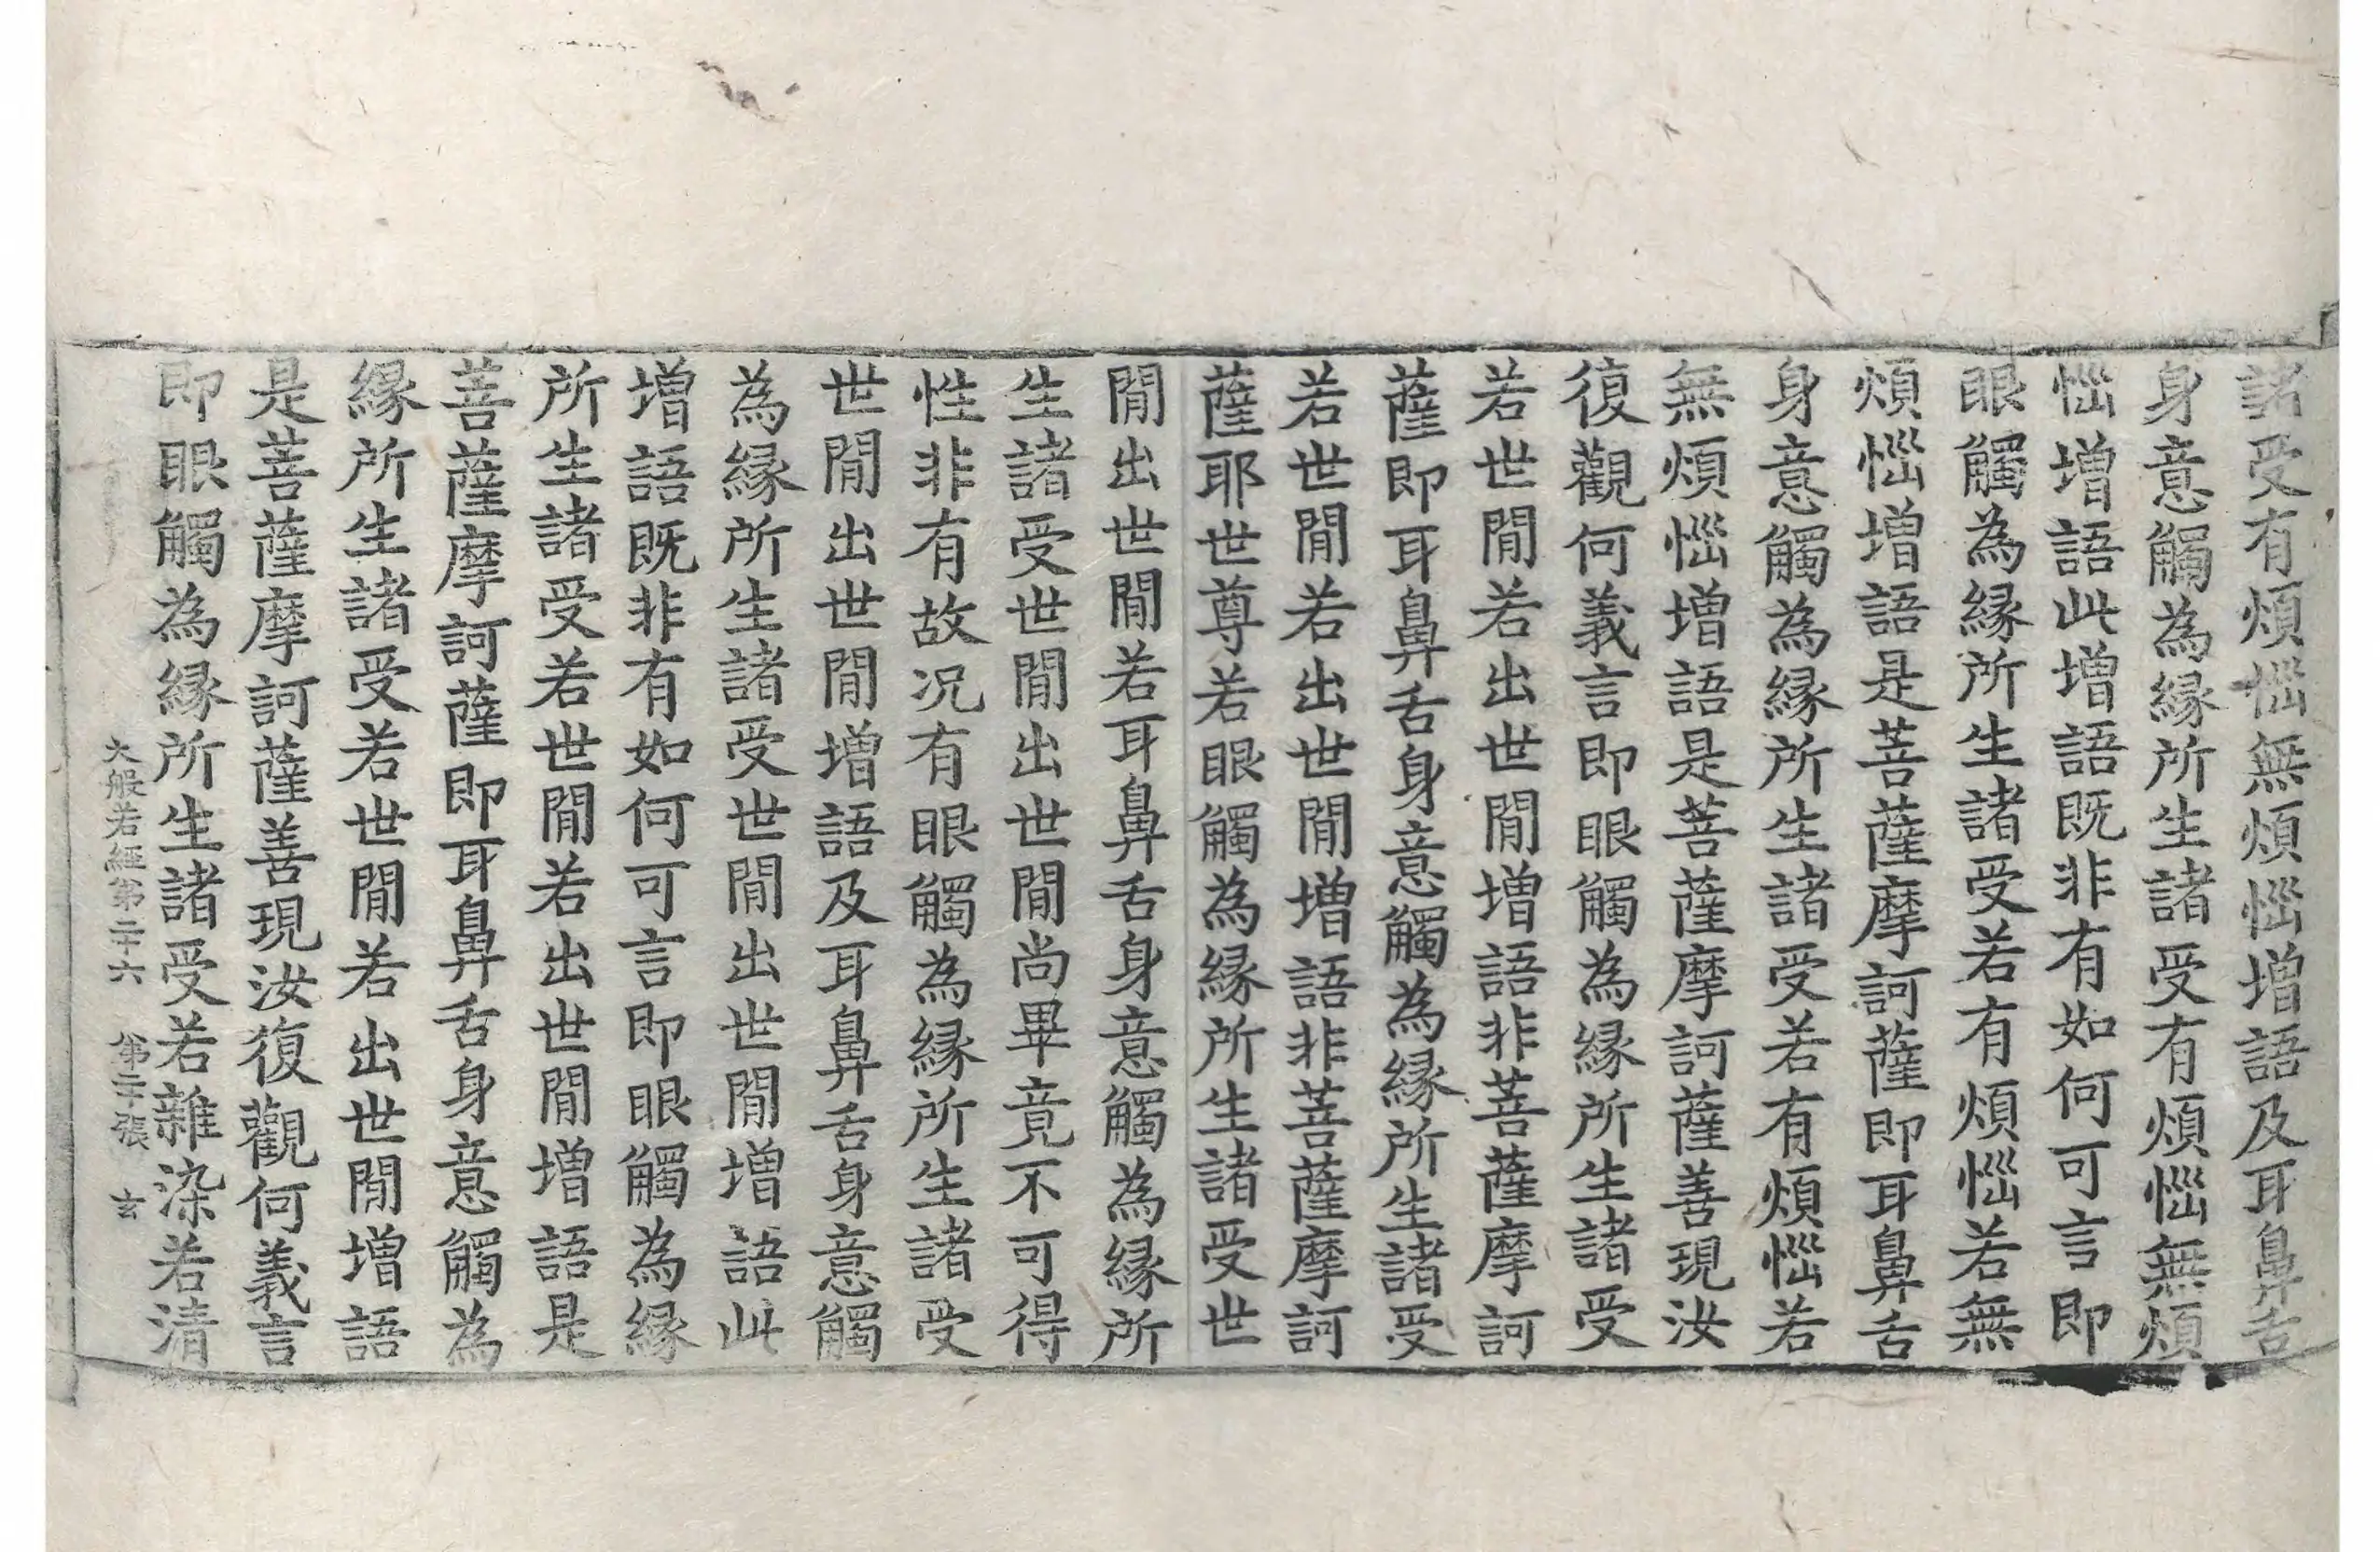 諸受有煩惱無煩惱增語及耳鼻舌
身意觸為緣所生諸受有煩惱無煩
惱增語此增語既非有如何可言即
眼觸為緣所生諸受若有煩惱若無
煩惱增語是菩薩摩訶薩即耳鼻舌
身意觸為緣所生諸受若有煩惱若
無煩惱增語是菩薩摩訶薩善現汝
復觀何義言即眼觸為緣所生諸受
若世閒若出世閒增語非菩薩摩訶
薩即耳鼻舌身意觸為緣所生諸受
若世閒若出世閒增語非菩薩摩訶
薩耶世尊若眼觸為緣所生諸受世
閒出世閒若耳鼻舌身意觸為緣所
生諸受世閒出世閒尚畢竟不可得
性非有故況有眼觸為緣所生諸受
世閒出世閒增語及耳鼻舌身意觸
為緣所生諸受世閒出世閒增語此
增語既非有如何可言即眼觸為緣
所生諸受若世閒若出世閒增語是
菩薩摩訶薩即耳鼻舌身意觸為
緣所生諸受若世閒若出世閒增語
是菩薩摩訶薩善現汝復觀何義言
即眼觸為緣所生諸受若雜染若清
大般若經第二十六 第二十張 玄